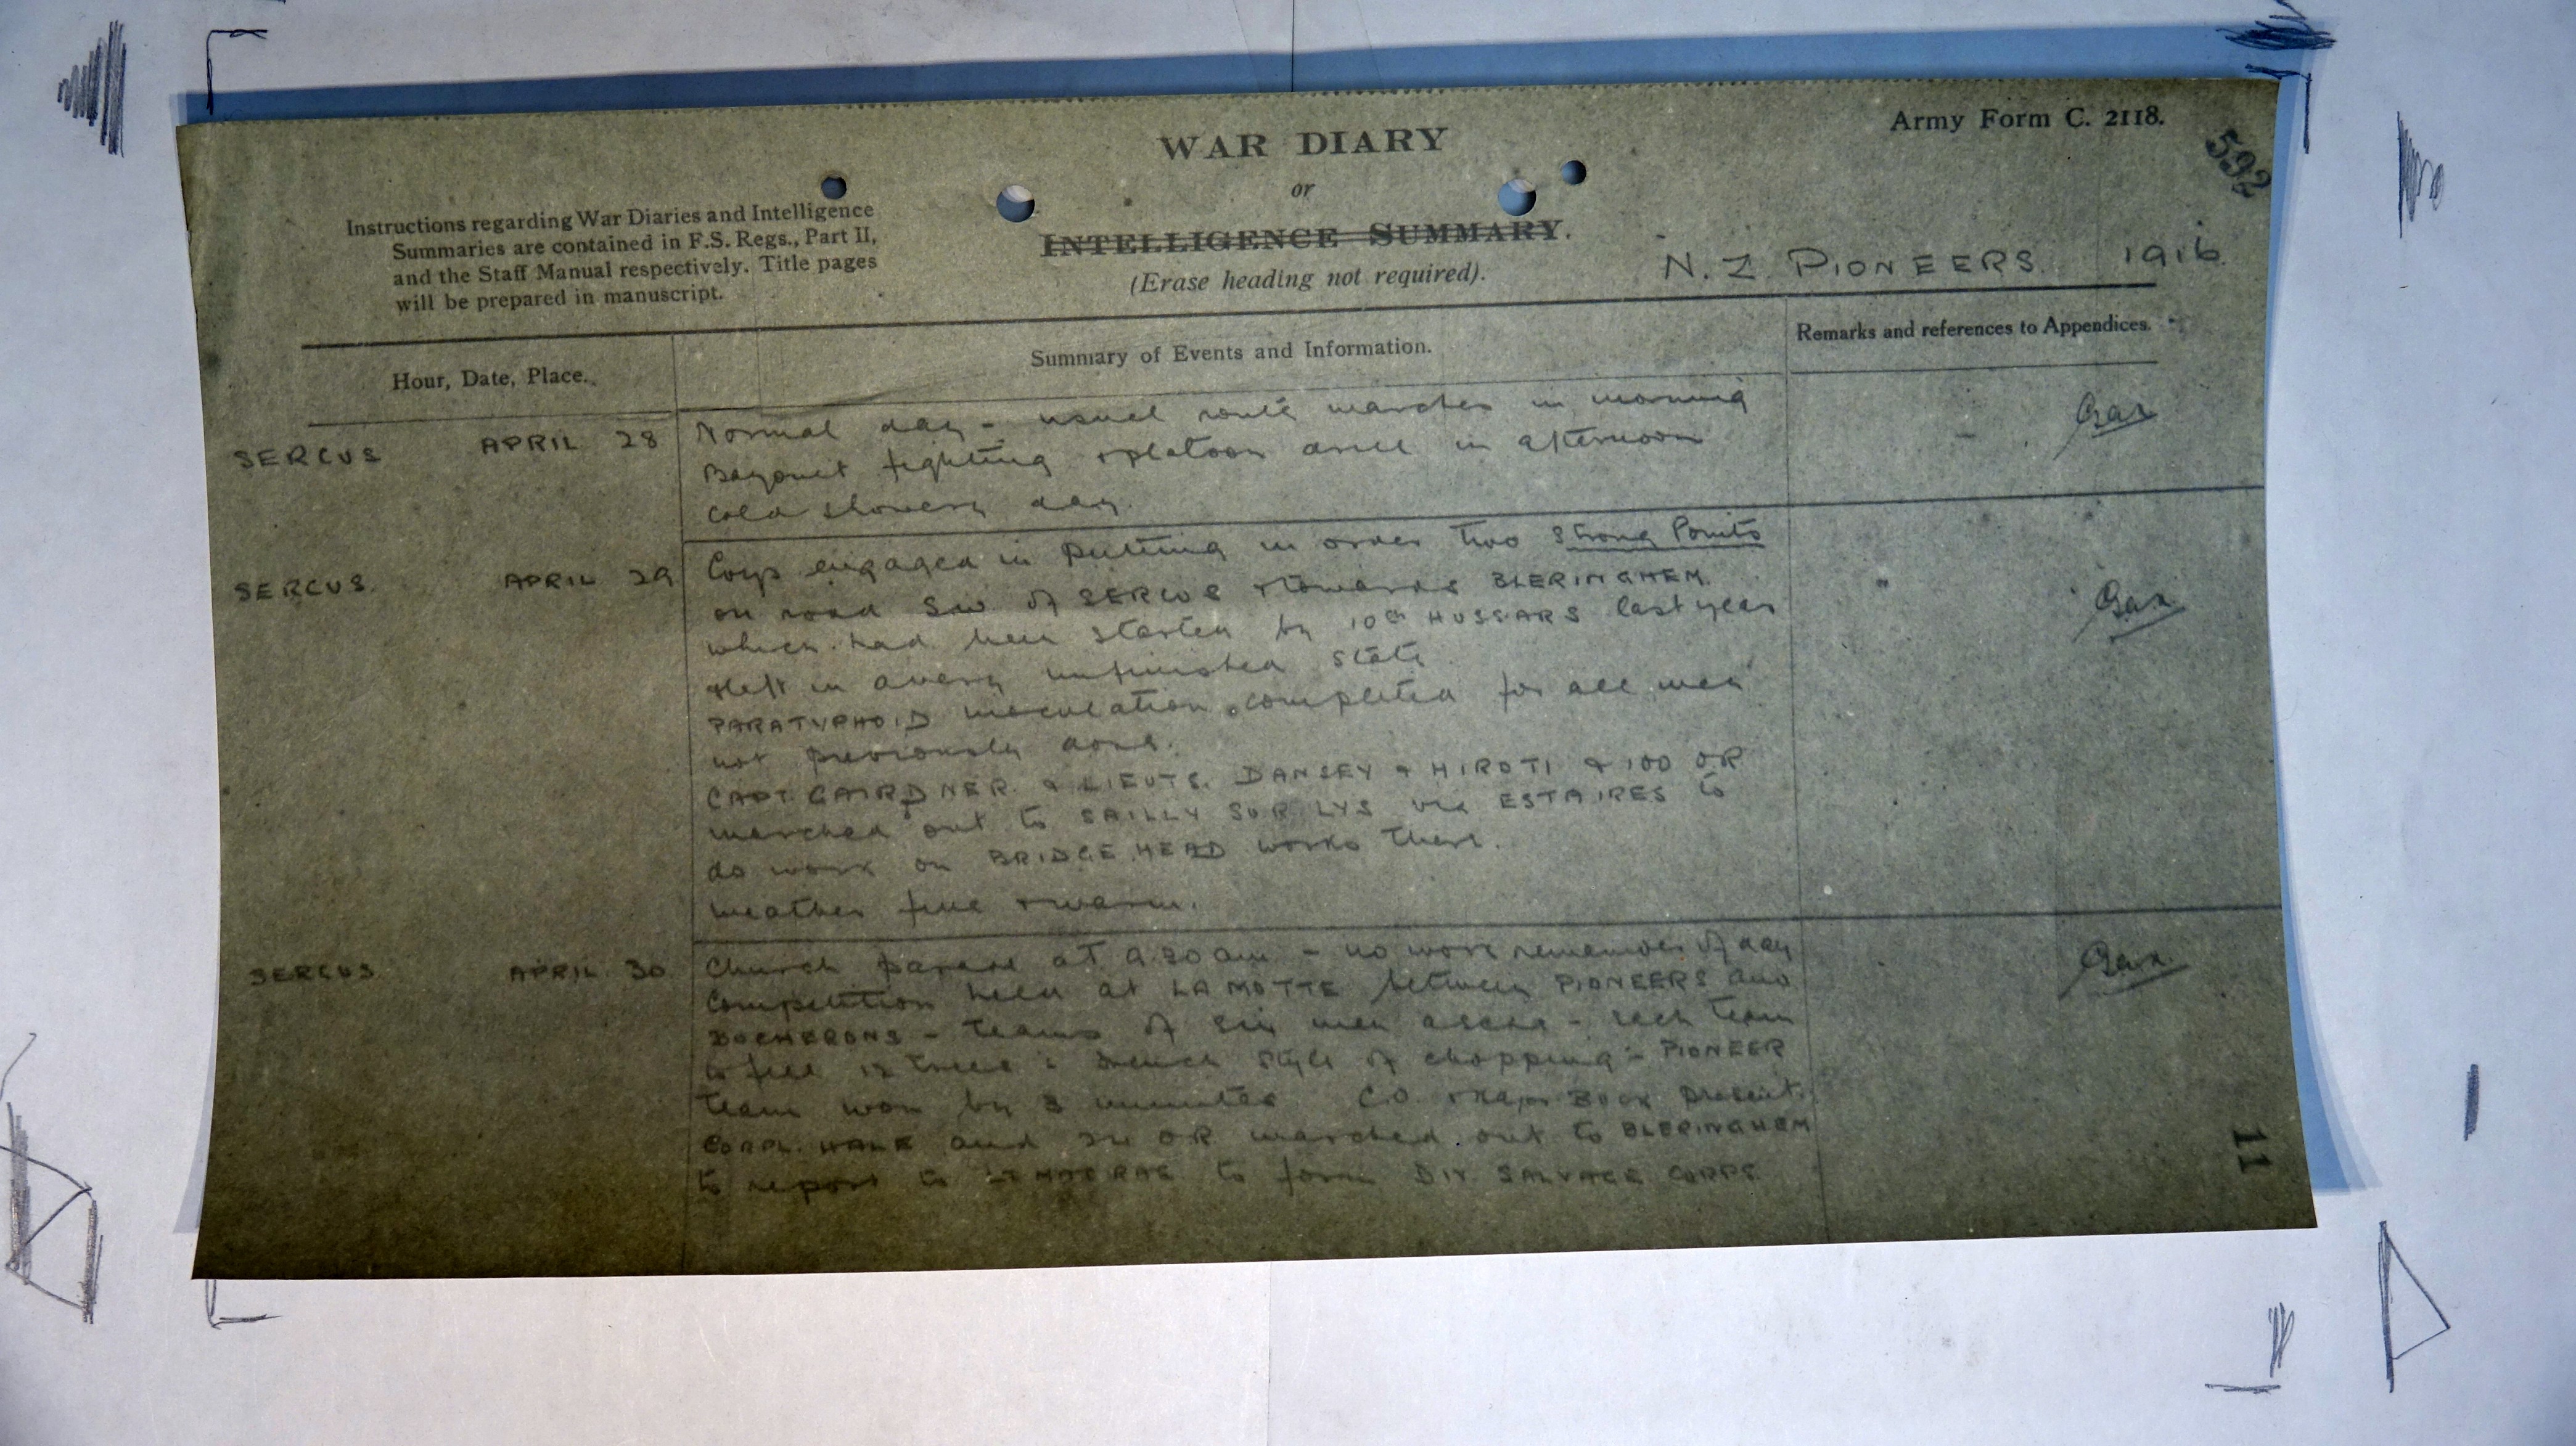 Army Form C. 2118.
592
WAR DIARY
or
INTELLIGENCE SUMMARY.
(Erase heading not required).
Instructions regarding War Diaries and Intelligence
Summaries are contained in F.S. Regs., Part II,
and the Staff Manual respectively. Title pages
will be prepared in manuscript.
N.Z. PIONEERS. 1916
Hour, Date, Place.
Summary of Events and Information.
Remarks and references to Appendices.
SERCUS APRIL 28
Normal day - usual route marches in morning
Bayonet fighting + platoon drill in afternoon
cold showery day.
SERCUS. APRIL 29
Corps engaged in putting in order two Strong Points
on road S.W. of SERCUS + towards BLERINGHEM.
which had been started by 10th HUSSARS last year
+ left in a very unfinished state.
PARATYPHOID inoculation completed for all men
not previously done.
CAPT. GAIRDNER & LIEUTS. DANSEY & HIROTI & 100 OR
marched out to SAILLY SUR LYS via ESTAIRES to
do work on BRIDGE HEAD works there.
Weather fine + warm.
SERCUS APRIL 30
Church parade at 9.30 am - no work remainder of day
Competition held at LA MOTTE between PIONEERS and
BUCHERONS - teams of six men - each team
to fell 12 trees: French style of chopping - PIONEER
team won by 3 minutes. C.O. + Major BUCK present.
CORPL. and 24 OR marched out to BLERINGHEM
to report to LT MACRAE to form DIV. SALVAGE CORPS.
11